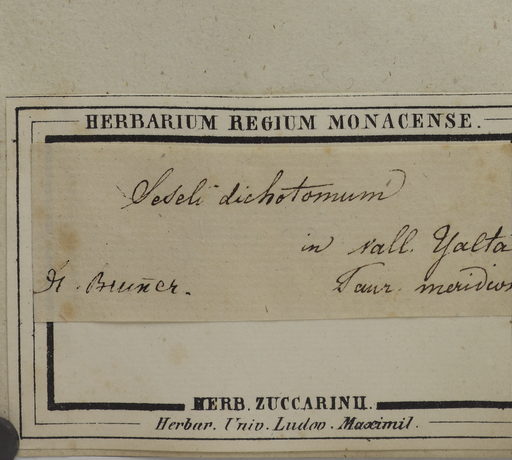 HERBARIUM REGIUM MONACENSE.
Seseli dichotomum
in vall. Yalta
Taur. meridion
Bruñer.
HERB. ZUCCARINII.
Herbar. Univ. Ludov. Maximil.